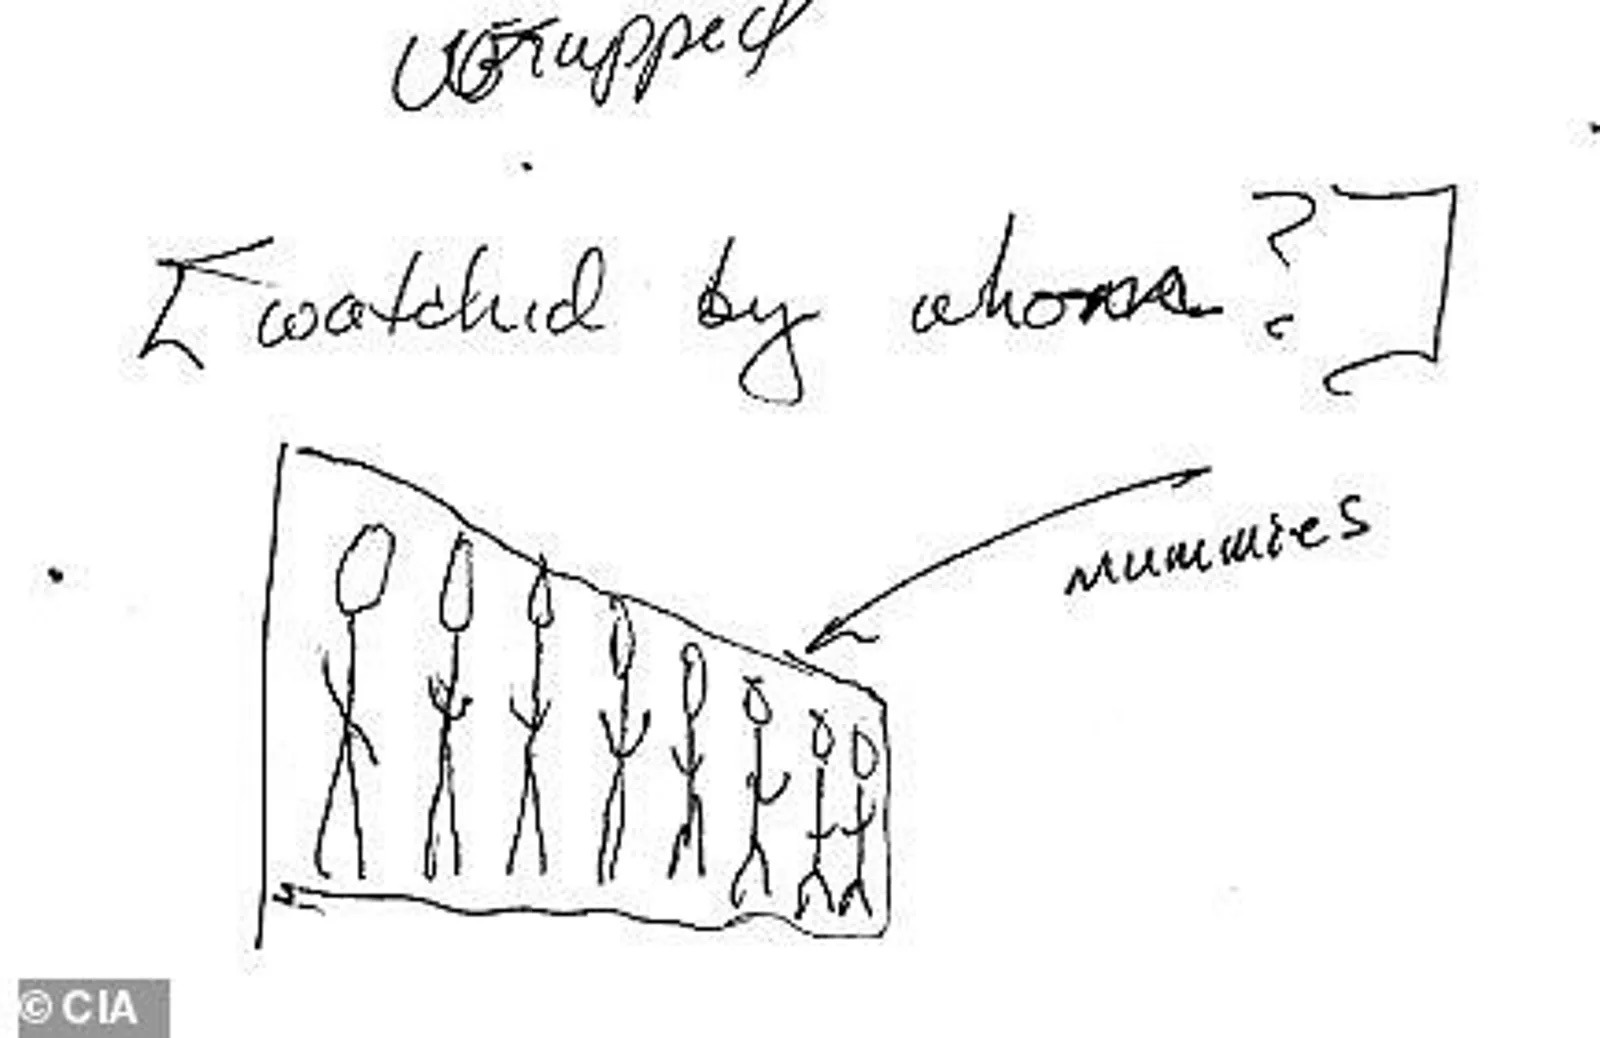 wrapped
[watched by whom?]
mummies
© CIA